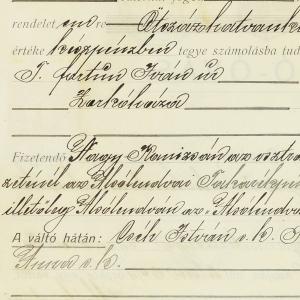 rendelet, en re Ötszázhatvank
értéke készpénzben tegye számolásba tud
T. Fortún Iván úr
Zorkóháza
Fizetendő Nagy-Kanizsán az osztrá
zeténél az Alsólendvai Takarékpén
illetőleg Alsólendván az Alsólendva
A váltó hátán: Cséh István s. k.
Anna s. k.